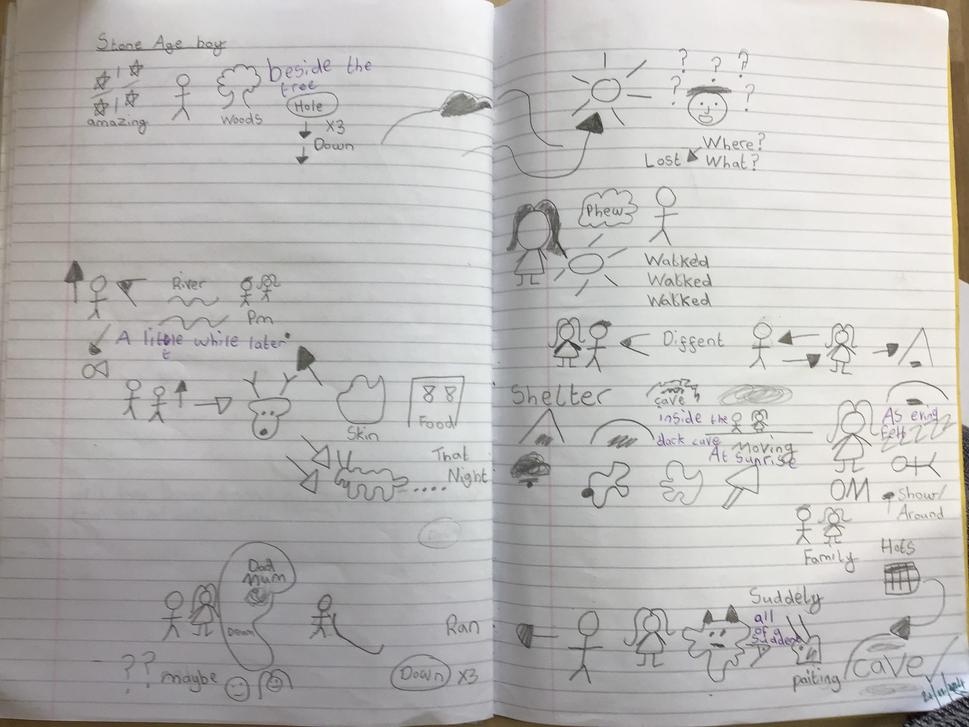 Stone Age boy
beside the
tree
Hole
amazing
Woods
X3
Down
River
Pm
A little while later
t
88
Skin
Food
That
Night
Dad
mum
Down
Ran
?? maybe
Down X3
? ? ?
? ?
Where?
Lost What?
Phew
Walked
Walked
Walked
Diffent
Shelter
cave
inside the
dark cave
moving
At sunrise
AS ering
felt
OM
Show/
Around
Family
Hots
Suddely
all
of a
sudden
paiting
cave